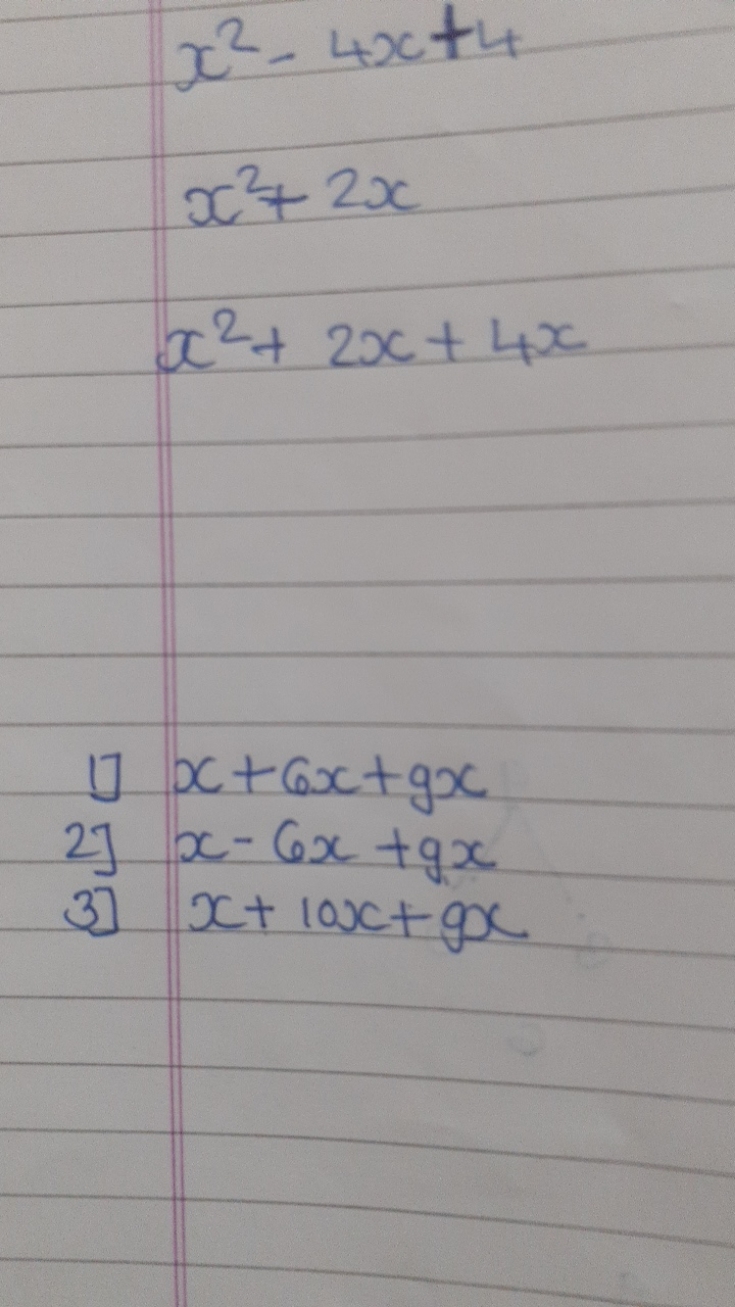 x² - 4x + 4
x² + 2x
x² + 2x + 4x
1] x + 6x + 9x
2] x - 6x + 9x
3] x + 10x + 9x